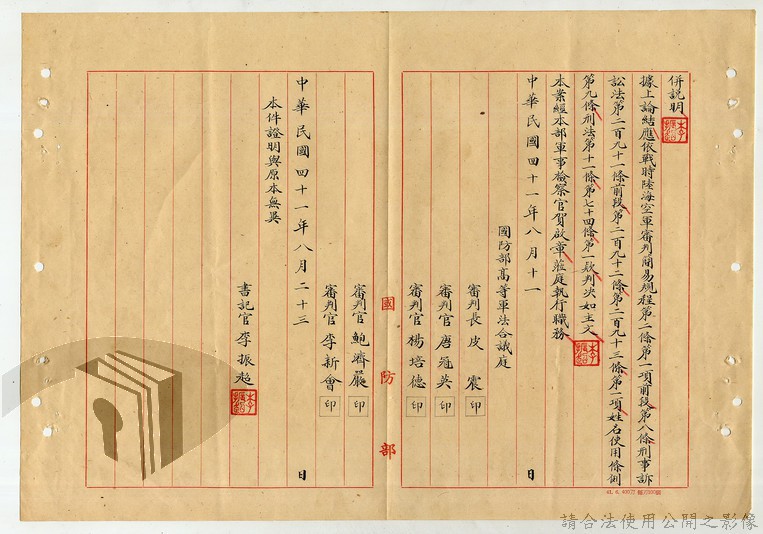 併説明
據上論結應依戰時陸海空軍審判簡易規程第二條第一項前段第八條刑事訴
訟法第二百九十一條前段第二百九十二條第二百九十三條第一項姓名使用條例
第九條刑法第十一條第七十四條第一款判决如主文
本案經本部軍事檢察官賀啟章蒞庭執行職務
中華民國四十一年八月十一日
國防部高等軍法合議庭
審判長皮震印
審判官唐冠英印
審判官楊培德印
國防部
審判官鮑濟嚴印
審判官李新會印
中華民國四十一年八月二十三日
本件證明與原本無異
書記官李振超
請合法使用公開之影像